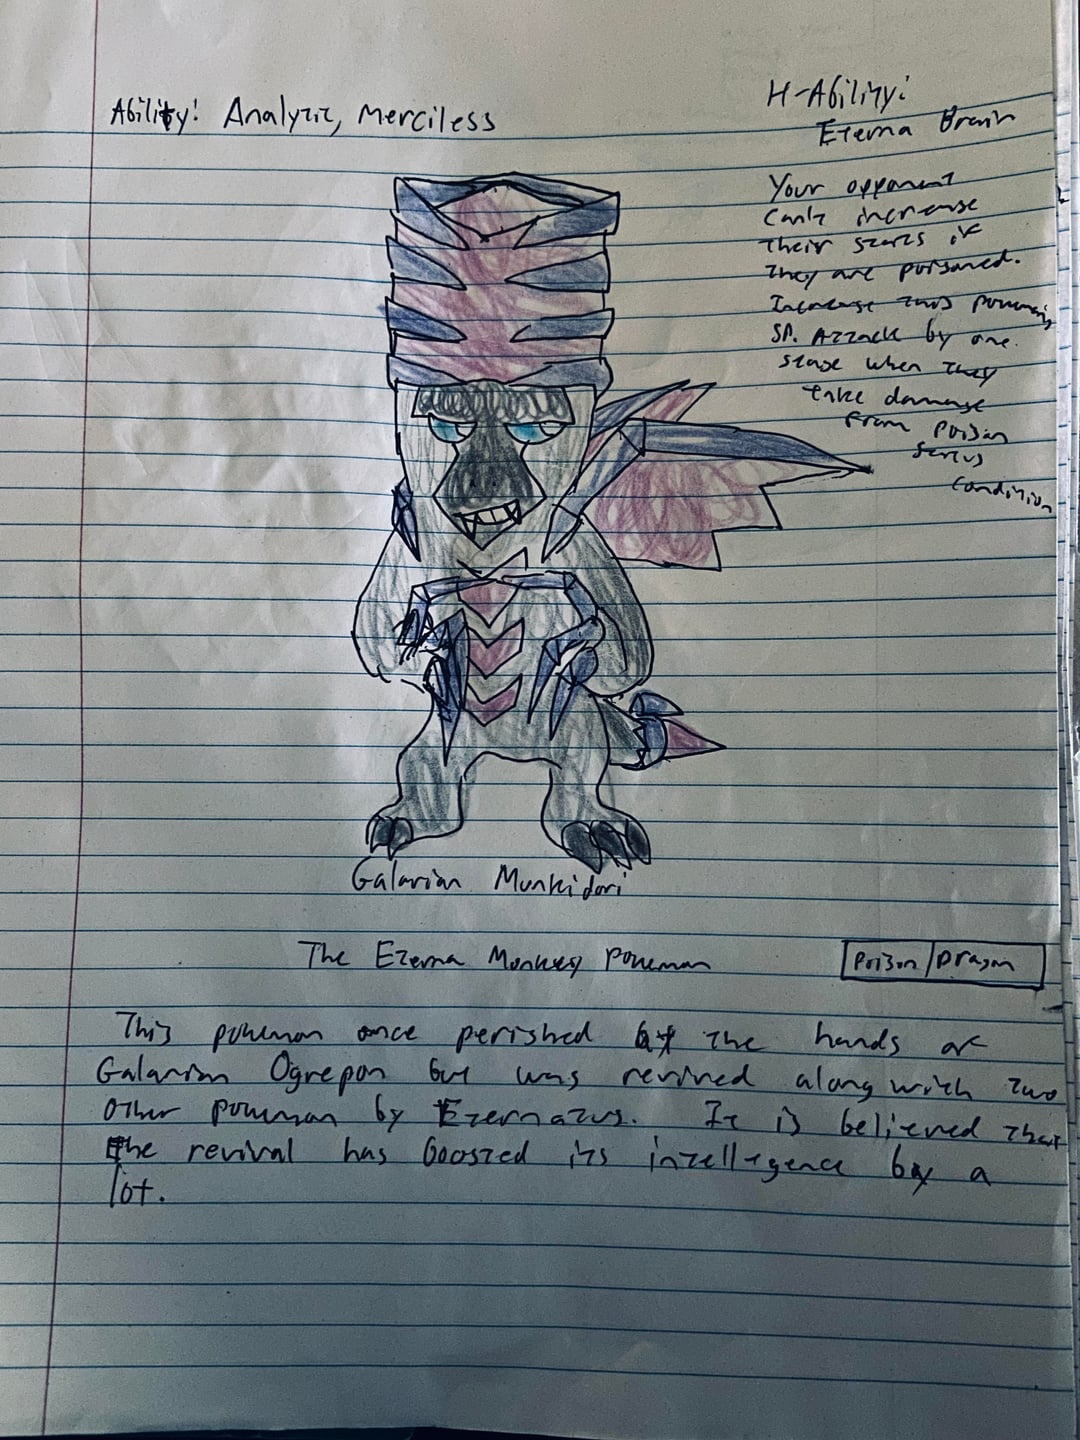 Ability: Analytic, Merciless
H-Ability:
Eterna Brain
Your opponent
Can't increase
their stats if
they are poisoned.
Increase this pokemon's
SP. Attack by one
stage when they
take damage
from poison
status
condition
Galarian Munkidori
The Eterna Monkey Pokemon
Poison/Dragon
This pokemon once perished at the hands of
Galarian Ogrepon but was revived along with two
other pokemon by Eternatus. It is believed that
the revival has boosted its intellegence by a
lot.